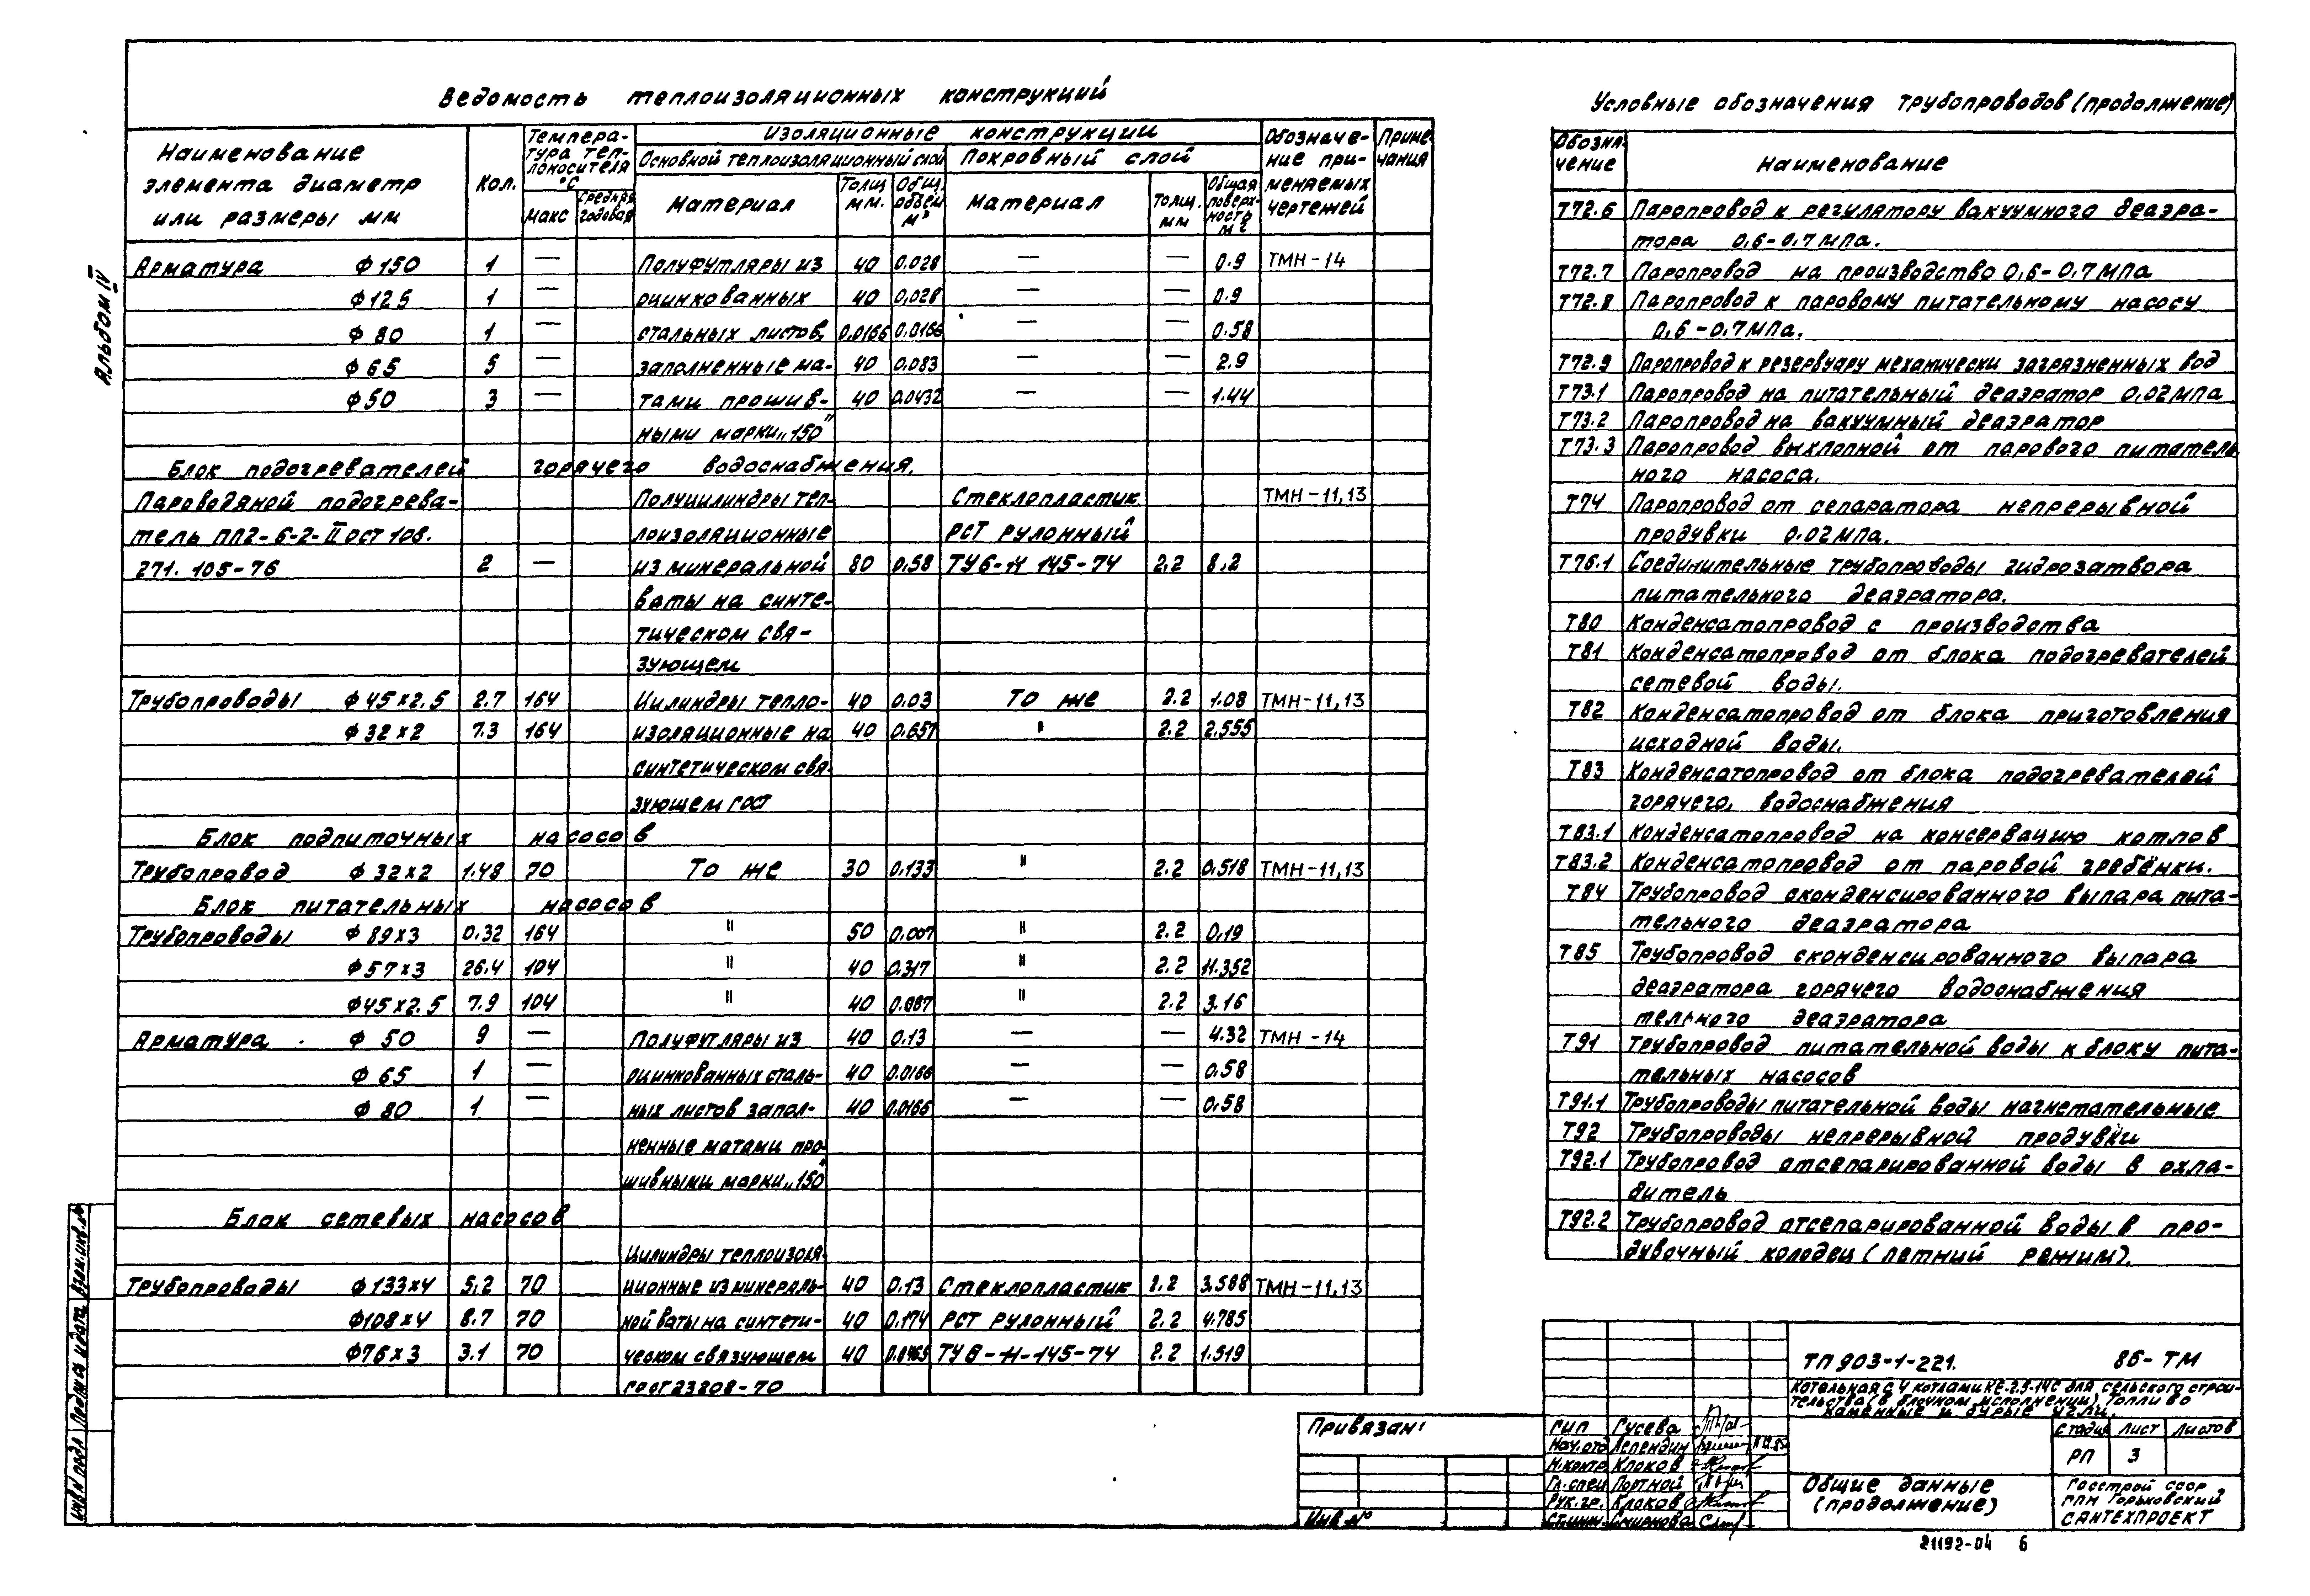 Ведомость теплоизоляционных конструкций
Наименование элемента диаметр или размеры мм | Кол. | Температура теплоносителя °С | макс | средняя годовая | Изоляционные конструкции | Обозначение применяемых чертежей | Примечания
Основной теплоизоляционный слой | Покровный слой
Материал | Толщ. мм. | Общ. объем м³ | Материал | Толщ. мм | Общая поверхность м²
Арматура ф150 1 — Полуфутляры из 40 0.028 — — 0.9 ТМН-14
ф125 1 — оцинкованных 40 0,028 — — 0.9
ф 80 1 — стальных листов, 0.0166 0.0166 — — 0.58
ф 65 5 — заполненные ма- 40 0.083 — — 2.9
ф50 3 — тами прошив- 40 0.0432 — — 1.44
ными марки „150"
Блок подогревателей горячего водоснабжения.
Пароводяной подогрева- Полуцилиндры теп- Стеклопластик ТМН-11,13
тель ПП2-6-2-II ост 108. лоизоляционные РСТ рулонный
271. 105-76 2 — из минеральной 80 0.58 ТУ6-11 145-74 2.2 8.2
ваты на синте-
тическом свя-
зующем
Трубопроводы ф 45х2.5 2.7 164 Цилиндры тепло- 40 0.03 То же 2.2 1.08 ТМН-11,13
ф 32х2 7.3 164 изоляционные на 40 0.657 " 2.2 2.555
синтетическом свя-
зующем гост
Блок подпиточных насосов
Трубопровод ф 32х2 1.48 70 То же 30 0.133 " 2.2 0.518 ТМН-11,13
Блок питательных насосов
Трубопроводы ф 89х3 0.32 164 " 50 0.007 " 2.2 0.19
ф57х3 26.4 104 " 40 0.317 " 2.2 11.352
ф45х2.5 7.9 104 " 40 0.087 " 2.2 3.16
Арматура ф 50 9 — Полуфутляры из 40 0.13 — — 4.32 ТМН-14
ф 65 1 — оцинкованных сталь- 40 0.0166 — — 0.58
ф 80 1 — ных листов запол- 40 0.0166 — — 0.58
ненные матами про-
шивными марки „150"
Блок сетевых насосов
Цилиндры теплоизоля-
Трубопроводы ф133х4 5.2 70 ционные из минераль- 40 0.13 Стеклопластик 2.2 3.588 ТМН-11,13
ф108х4 8.7 70 ной ваты на синтети- 40 0.174 РСТ рулонный 2.2 4.785
ф76х3 3.1 70 ческом связующем 40 0.0465 ТУ6-11-145-74 2.2 1.519
гост 23208-70
Условные обозначения трубопроводов (продолжение)
Обозначение | Наименование
Т72.6 Паропровод к регулятору вакуумного деаэра-
тора 0,6-0,7 МПа.
Т72.7 Паропровод на производство 0,6-0,7 МПа
Т72.8 Паропровод к паровому питательному насосу
0,6-0,7 МПа.
Т72.9 Паропровод к резервуару механически загрязненных вод
Т73.1 Паропровод на питательный деаэратор 0,02 мпа
Т73.2 Паропровод на вакуумный деаэратор
Т73.3 Паропровод выхлопной от парового питатель
ного насоса.
Т74 Паропровод от сепаратора непрерывной
продувки 0.02 МПа.
Т76.1 Соединительные трубопроводы гидрозатвора
питательного деаэратора.
Т80 Конденсатопровод с производства
Т81 Конденсатопровод от блока подогревателей
сетевой воды.
Т82 Конденсатопровод от блока приготовления
исходной воды.
Т83 Конденсатопровод от блока подогревателей
горячего, водоснабжения
Т83.1 Конденсатопровод на консервацию котлов
Т83.2 Конденсатопровод от паровой гребёнки.
Т84 Трубопровод сконденсированного выпара пита-
тельного деаэратора
Т85 Трубопровод сконденсированного выпара
деаэратора горячего водоснабжения
тельного деаэратора
Т91 Трубопровод питательной воды к блоку пита-
тельных насосов
Т91.1 Трубопроводы питательной воды нагнетательные
Т92 Трубопроводы непрерывной продувки
Т92.1 Трубопровод отсепарированной воды в охла-
дитель
Т92.2 Трубопровод отсепарированной воды в про-
дувочный колодец (летний режим).
Альбом IV
Взам. инв. №
Подпись и дата
Инв № подл
Привязан:
Инв №
ТП 903-1-221. 86-ТМ
Котельная с 4 котлами КЕ-2.5-14С для сельского строи-
тельства (в блочном исполнении). Топливо
каменные и бурые угли.
ГИП Гусева
Нач. отд Лепендин
Н. контр Клоков
Гл. спец Портной
Рук. гр. Клоков
Ст. инж. Смирнова
Стадия Лист Листов
РП 3
Общие данные
(продолжение)
Госстрой СССР
ГПИ Горьковский
САНТЕХПРОЕКТ
21192-04 6